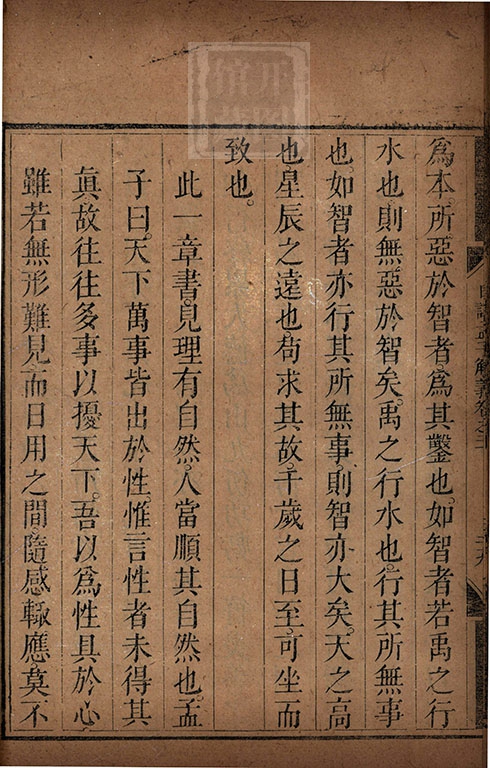 為本。所惡於智者。為其鑿也。如智者若禹之行
水也。則無惡於智矣。禹之行水也。行其所無事
也。如智者亦行其所無事。則智亦大矣。天之高
也。星辰之遠也。茍求其故。千歲之日至。可坐而
致也。
此一章書。見理有自然。人當順其自然也。孟
子曰。天下萬事皆出於性。惟言性者未得其
眞。故往往多事以擾天下。吾以為性具於心
雖若無形難見。而日用之間。隨感輙應。莫不